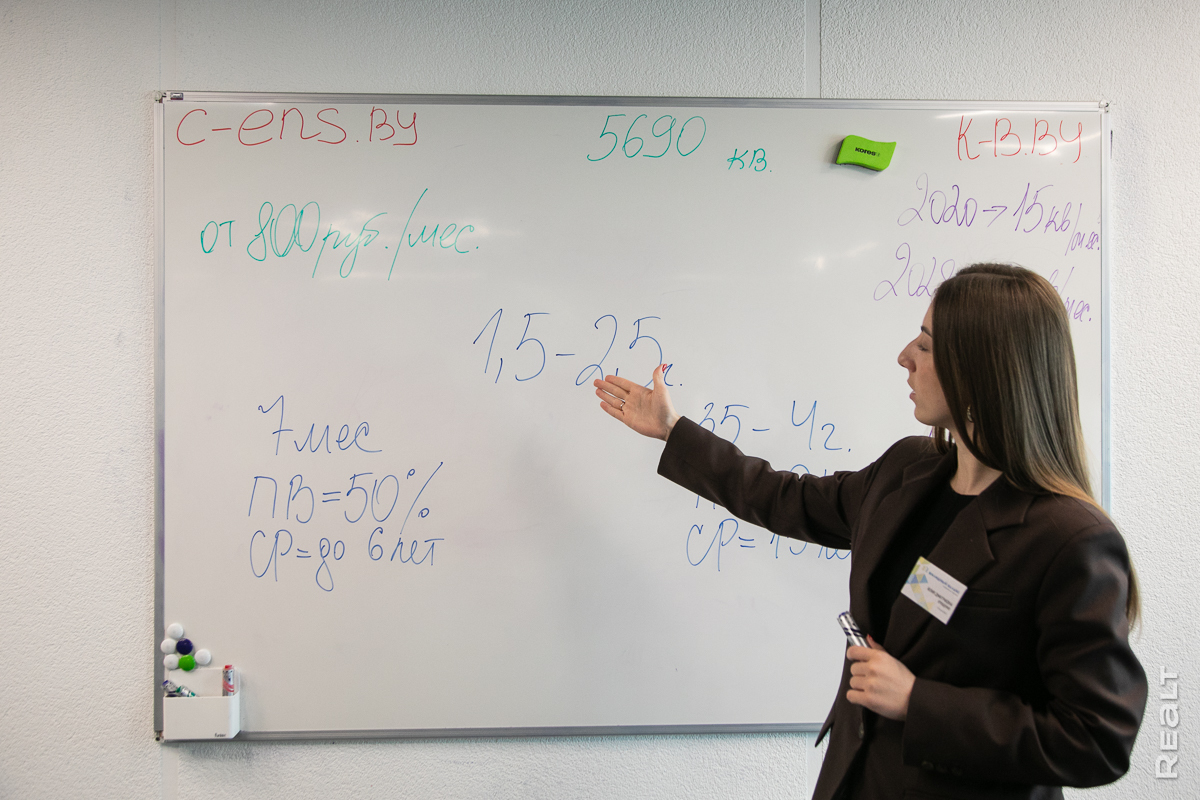 c-ens.BY
5690 кв.
kores
K-B.BY
от 800 руб./мес.
2020→15кв/мес.
мес.
1,5-2,5г.
7 мес
ПВ=50%
СР=до 6 лет
35- 4г.
СР= 15
REALT